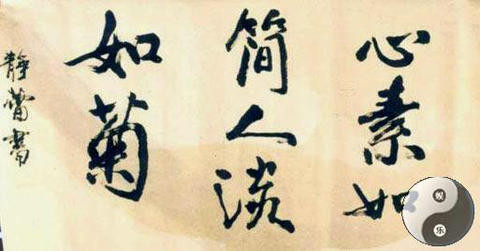 心素如
简人淡
如菊
静蕾書
娱
乐